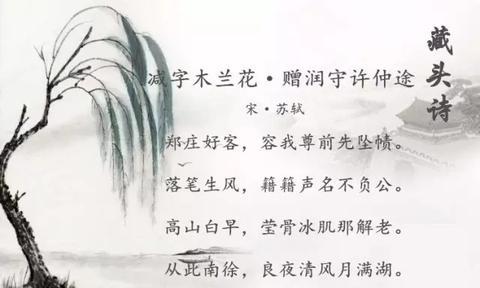 藏头诗
减字木兰花·赠润守许仲途
宋·苏轼
郑庄好客，容我尊前先坠帻。
落笔生风，籍籍声名不负公。
高山白早，莹骨冰肌那解老。
从此南徐，良夜清风月满湖。